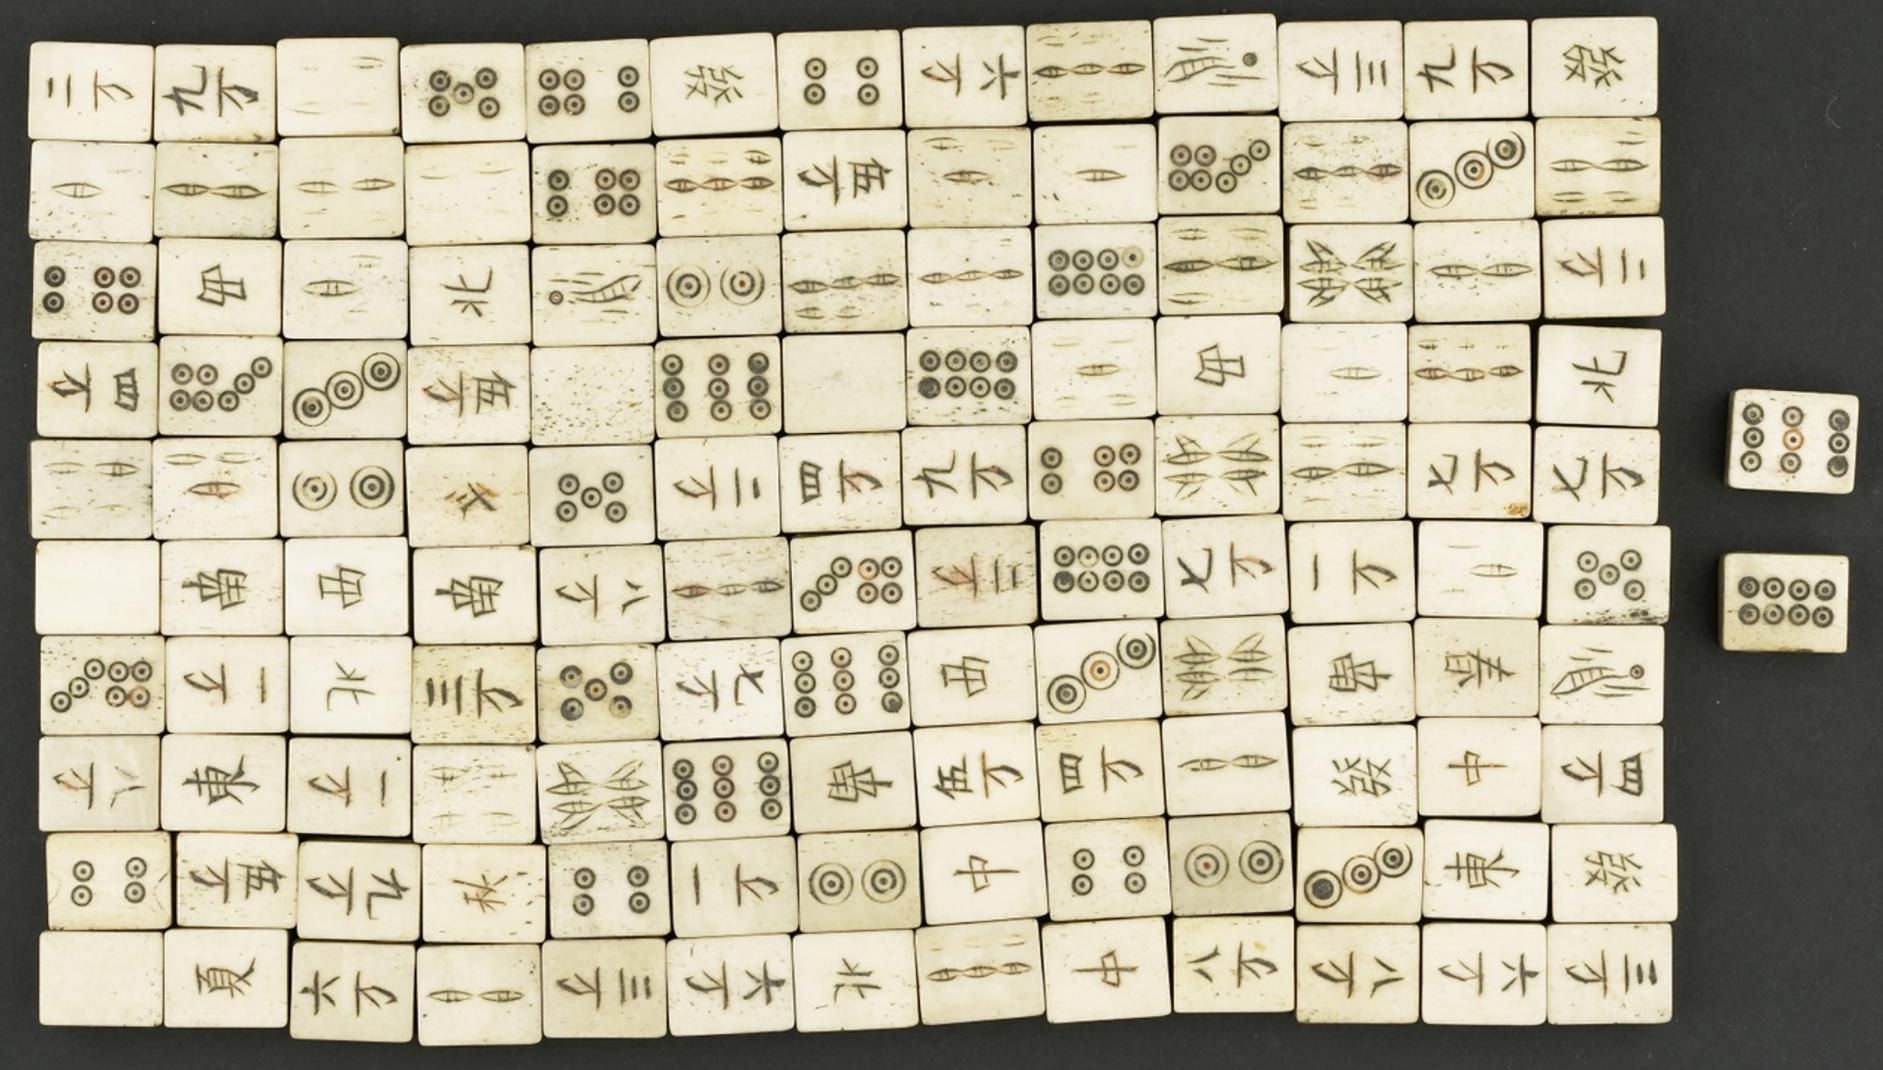 二万 九万 發 六万 三万 九万 發
伍万
西 北 二万
四万 伍万 西 北
冬 二万 四万 九万 七万 七万
南 西 南 八万 三万 七万 一万
一万 北 三万 七万 西 南 春
八万 東 一万 南 伍万 四万 發 中 四万
伍万 九万 秋 一万 中 東 發
夏 六万 三万 六万 北 中 八万 八万 六万 二万